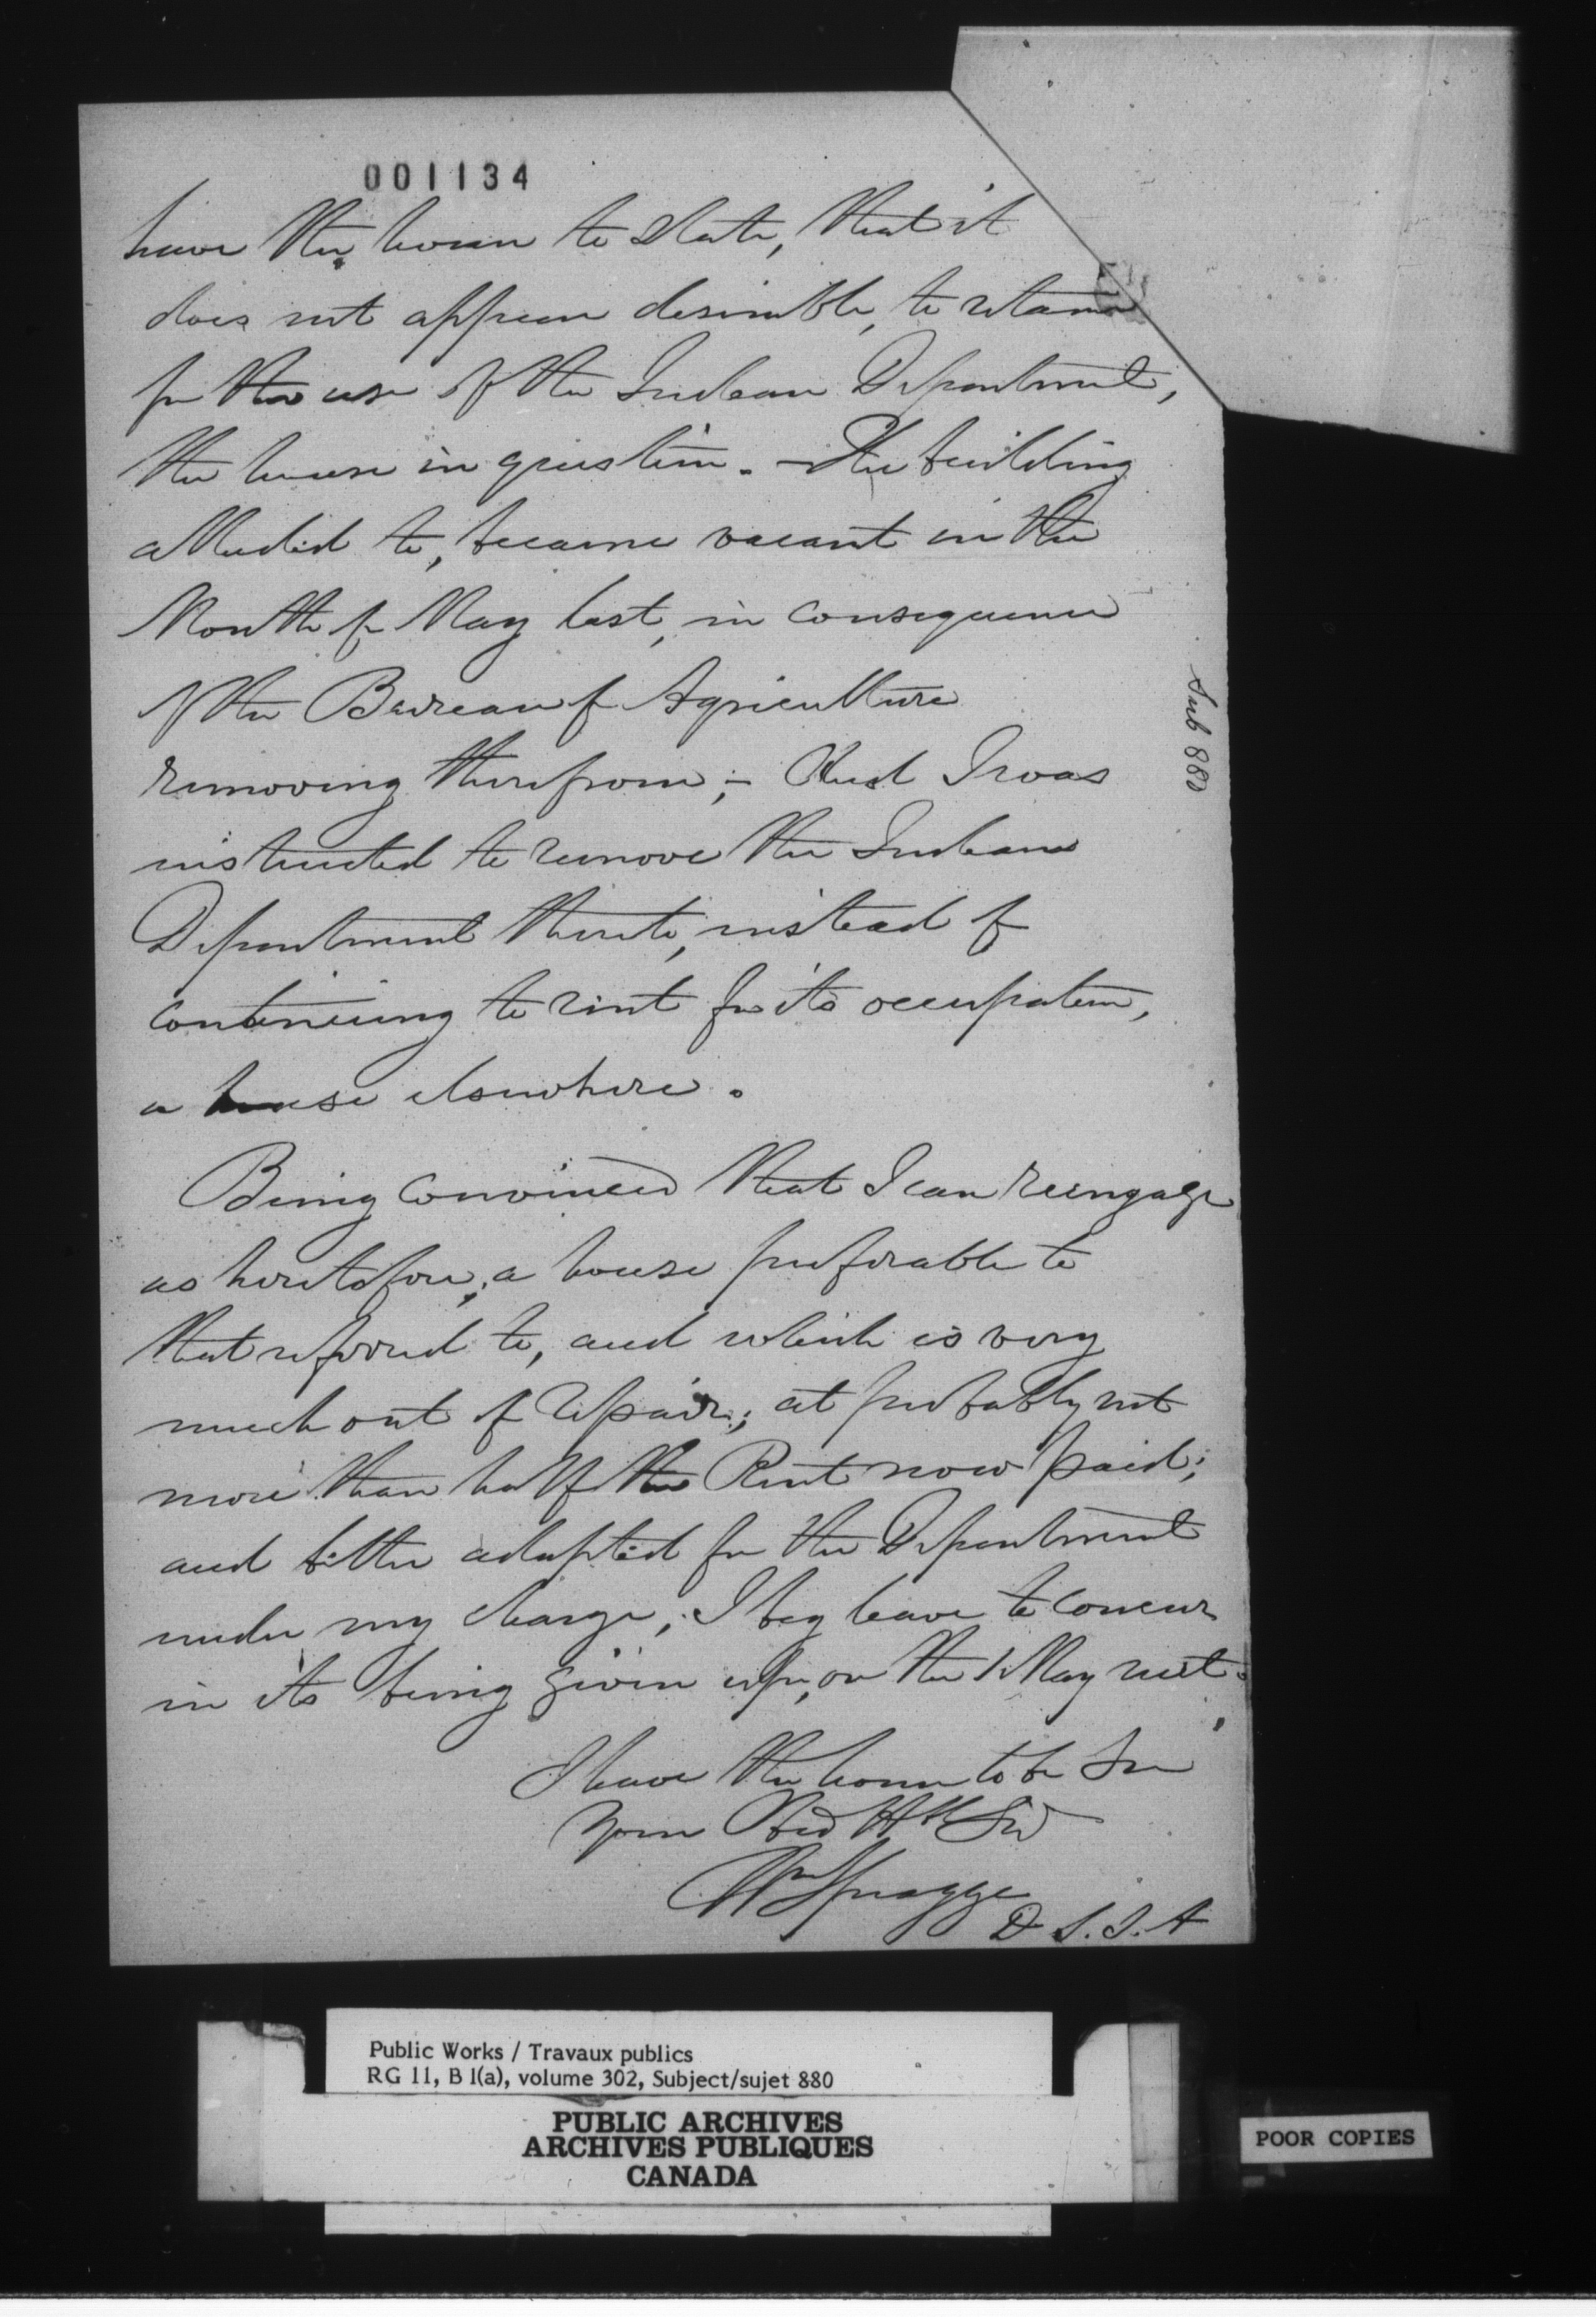 001134
have the honor to state, that it
does not appear desirable, to retain
for the use of the Indian Department,
the house in question. - The building
alluded to, became vacant in the
Month of May last, in consequence
of the Bureau of Agriculture
removing therefrom; - And I was
instructed to remove the Indian
Department thereto, instead of
continuing to rent for its occupation,
a house elsewhere.
Being convinced that I can reengage
as heretofore, a house preferable to
that referred to, and which is very
much out of repair; at probably not
more than half the Rent now paid;
and better adapted for the Department
under my charge; I beg leave to concur
in its being given up, on the 1 May next.
I have the honor to be Sir
Your Obd Hble Svt
Wm Spragge
D S. I. A
Sub 880
Public Works / Travaux publics
RG 11, B 1(a), volume 302, Subject/sujet 880
PUBLIC ARCHIVES
ARCHIVES PUBLIQUES
CANADA
POOR COPIES